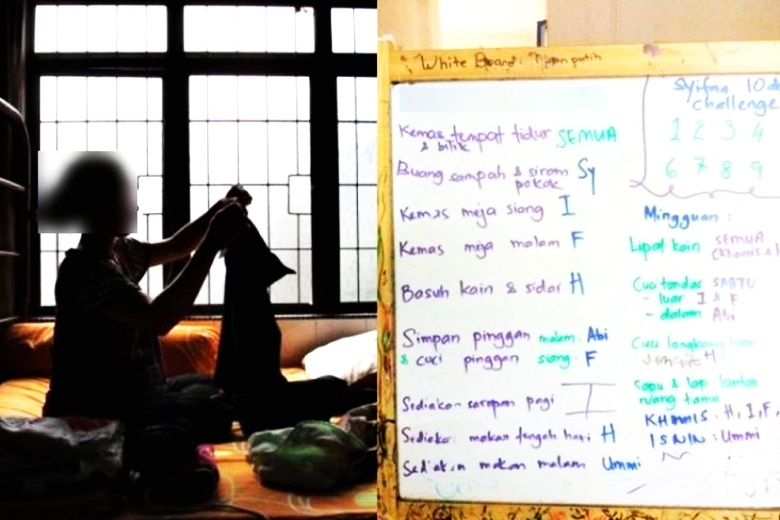 White Board: Papan putih
Kemas tempat tidur SEMUA
& bilik
Buang sampah & siram Sy
pokok
Kemas meja siang I
Kemas meja malam F
Basuh kain & sidai H
Simpan pinggan malam: Abi
& cuci pinggan siang: F
Sediakan sarapan pagi I
Sediakan makan tengah hari H
Sediakan makan malam Ummi
Syifaa 10 da
challenge
1 2 3 4
6 7 8 9
Mingguan:
Lipat kain SEMUA
(Khamis &
Cuci tandas SABTU
- luar I & F
- dalam Abi
Cuci
H
Sapu & lap lantai
ruang tamu
KHAMIS: H, I, F,
ISNIN: Ummi